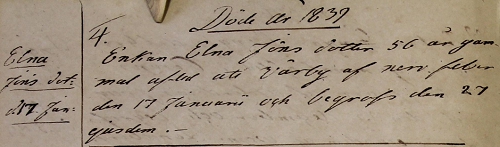 Döde År 1839
Elna
Jöns dot:
d. 17 Jan:
4.
Enkan Elna Jöns dotter 56 år gam
mal afled uti Wärby af nerv feber
den 17 Januarii och begrofs den 27
ejusdem. —